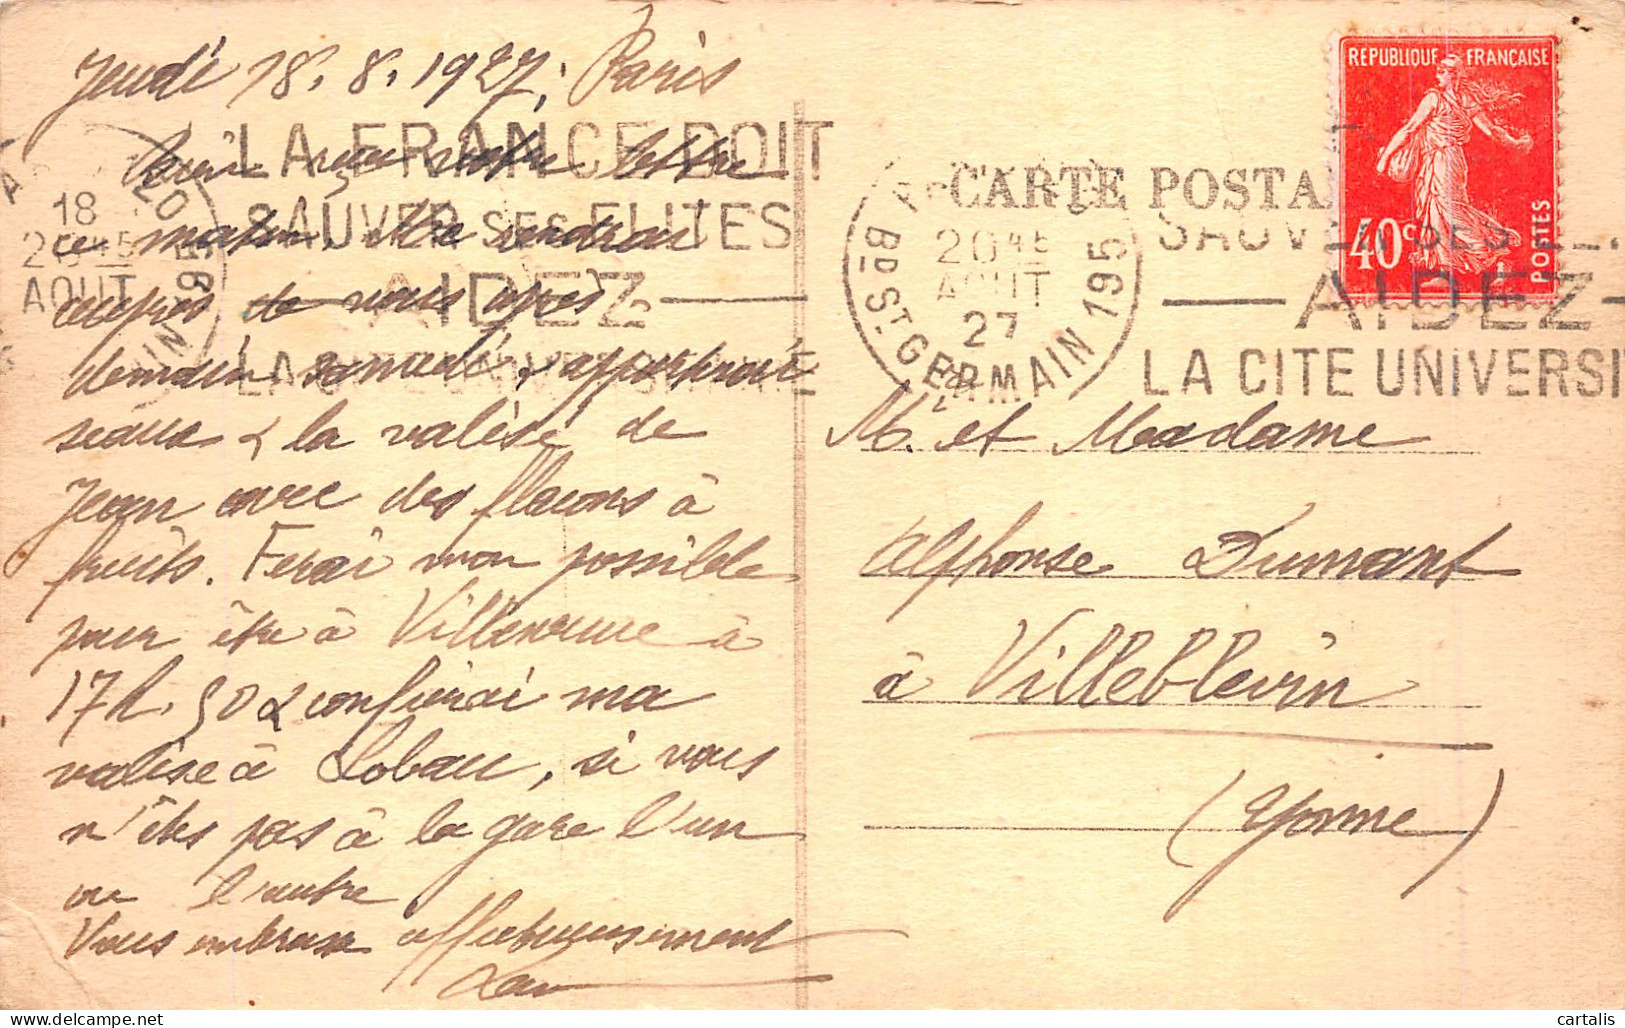 Jeudi 18.8.1927. Paris
reçu votre lettre
ce matin. Me rendrai
auprès de vous après
demain samedi & apporterai
seaux & la valise de
Jean avec des flacons à
fruits. Ferai mon possible
pour être à Villeneuve à
17h.30 & confierai ma
valise à Lobau, si vous
n'êtes pas à la gare l'un
ou l'autre
Vous embrasse affectueusement
LA FRANCE DOIT
SAUVER SES ELITES
AIDEZ
LA CITE UNIVERSITAIRE
18
20 45
AOUT
CARTE POSTA
REPUBLIQUE FRANÇAISE
40c
POSTES
20 45
AOUT
27
Bd ST GERMAIN 195
SAUVER SES
AIDEZ
LA CITE UNIVERSI
M. et Madame
Alphonse Dumont
à Villeblevin
(Yonne)
cartalis